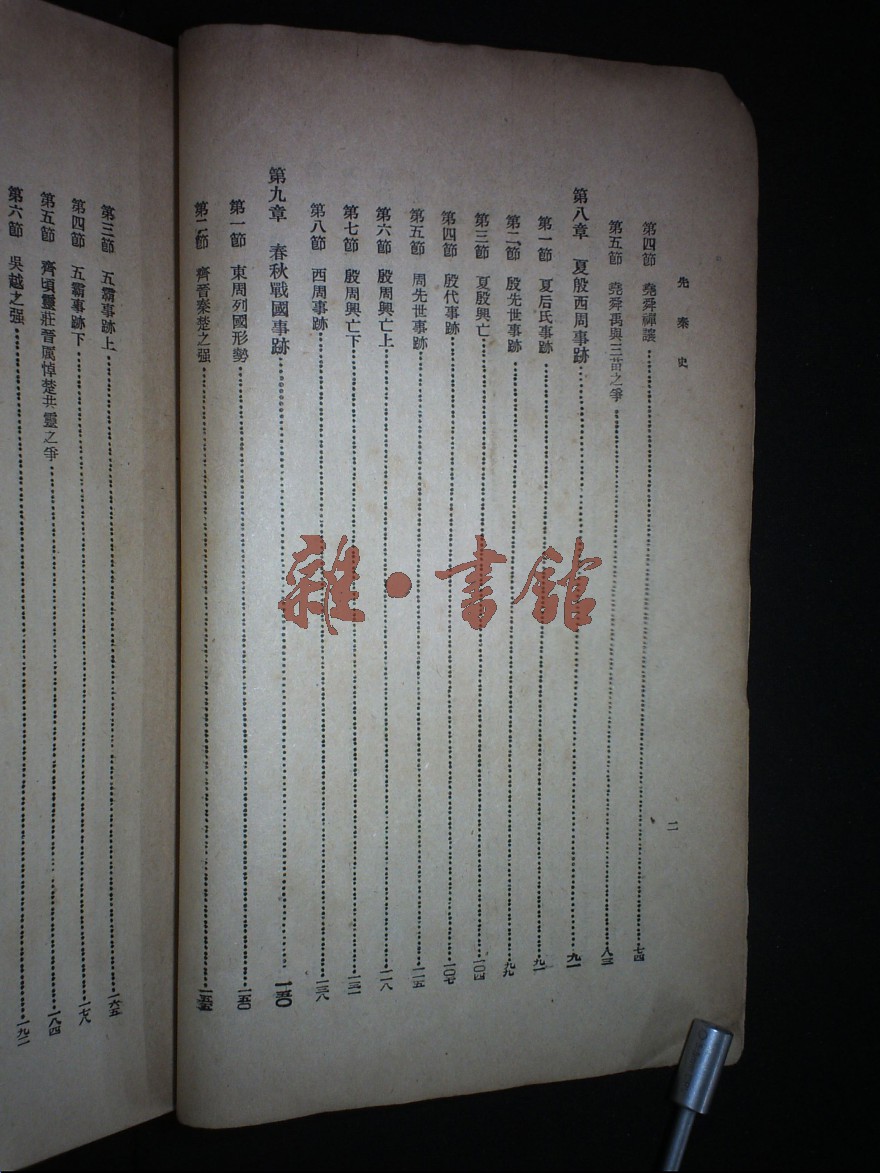 先秦史
二
第四節 堯舜禪讓……七四
第五節 堯舜禹與三苗之爭……八三
第八章 夏殷西周事跡……九一
第一節 夏后氏事跡……九一
第二節 殷先世事跡……九九
第三節 夏殷興亡……一〇四
第四節 殷代事跡……一〇七
第五節 周先世事跡……一一五
第六節 殷周興亡上……一一八
第七節 殷周興亡下……一三一
第八節 西周事跡……一三八
第九章 春秋戰國事跡……一五〇
第一節 東周列國形勢……一五〇
第二節 齊晉秦楚之强……一五五
第三節 五霸事跡上……一六五
第四節 五霸事跡下……一七八
第五節 齊頃靈莊晉厲悼楚共靈之爭……一八四
第六節 吳越之强……一九二
雜·書館